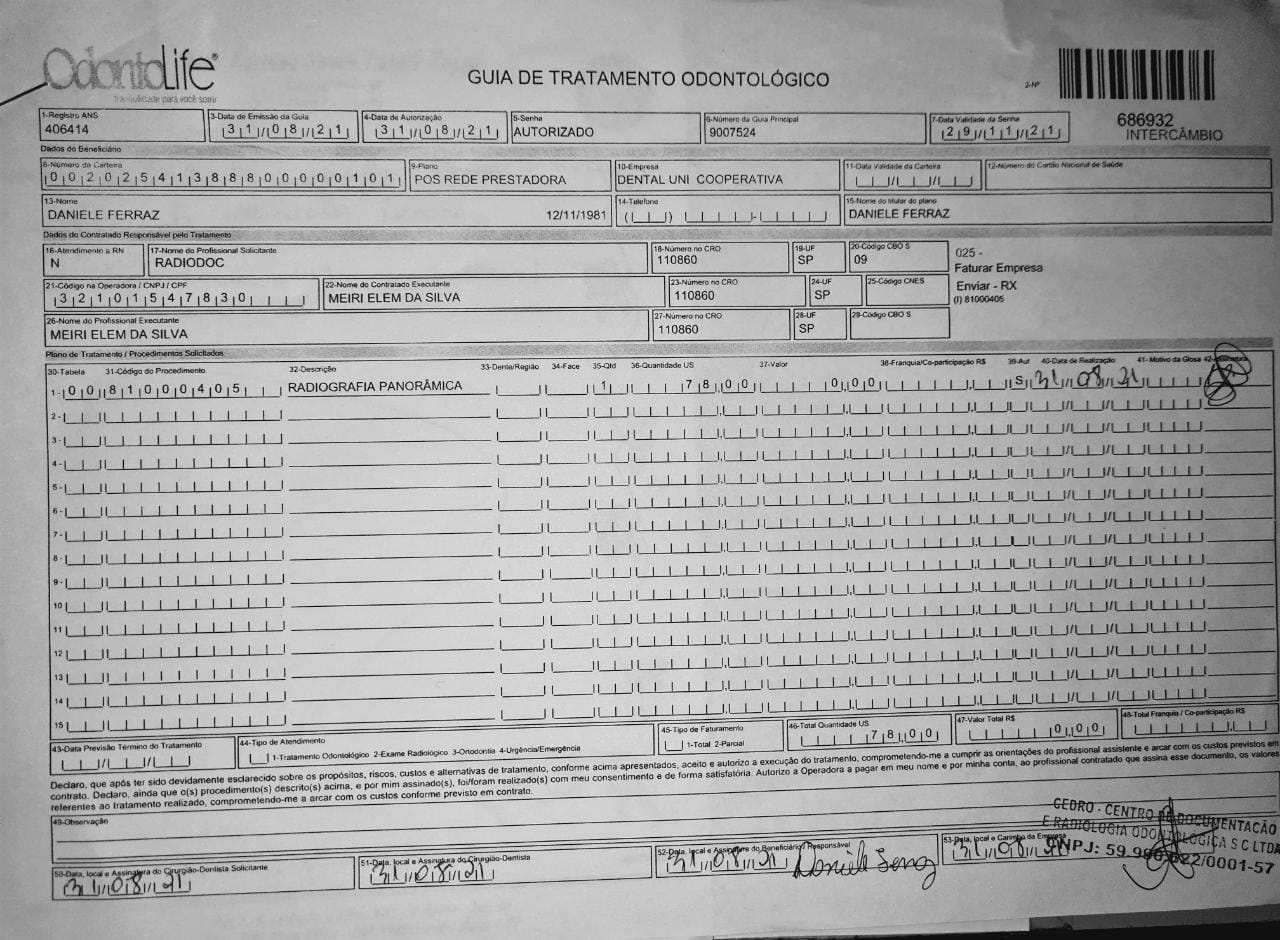 OdontoLife®
Tranquilidade para você sorrir
GUIA DE TRATAMENTO ODONTOLÓGICO
2-Nº
686932
INTERCÂMBIO
1-Registro ANS
406414
3-Data de Emissão da Guia
31/08/21
4-Data de Autorização
31/08/21
5-Senha
AUTORIZADO
6-Número da Guia Principal
9007524
7-Data Validade da Senha
29/11/21
Dados do Beneficiário
8-Número da Carteira
00202541388800000101
9-Plano
POS REDE PRESTADORA
10-Empresa
DENTAL UNI COOPERATIVA
11-Data Validade da Carteira
12-Número do Cartão Nacional de Saúde
13-Nome
DANIELE FERRAZ 12/11/1981
14-Telefone
15-Nome do titular do plano
DANIELE FERRAZ
Dados do Contratado Responsável pelo Tratamento
16-Atendimento a RN
N
17-Nome do Profissional Solicitante
RADIODOC
18-Número no CRO
110860
19-UF
SP
20-Código CBO S
09
025 -
Faturar Empresa
Enviar - RX
(I) 81000405
21-Código na Operadora / CNPJ / CPF
32101547830
22-Nome do Contratado Executante
MEIRI ELEM DA SILVA
23-Número no CRO
110860
24-UF
SP
25-Código CNES
26-Nome do Profissional Executante
MEIRI ELEM DA SILVA
27-Número no CRO
110860
28-UF
SP
29-Código CBO S
Plano de Tratamento / Procedimentos Solicitados
30-Tabela 31-Código do Procedimento 32-Descrição 33-Dente/Região 34-Face 35-Qtd 36-Quantidade US 37-Valor 38-Franquia/Co-participação R$ 39-Aut 40-Data de Realização 41- Motivo da Glosa 42-Assinatura
1- 00 81000405 RADIOGRAFIA PANORÂMICA 1 78,00 0,00 S 31/08/21
2-
3-
4-
5-
6-
7-
8-
9-
10
11
12
13
14
15
43-Data Previsão Término do Tratamento
44-Tipo de Atendimento
1-Tratamento Odontológico 2-Exame Radiológico 3-Ortodontia 4-Urgência/Emergência
45-Tipo de Faturamento
1-Total 2-Parcial
46-Total Quantidade US
78,00
47-Valor Total R$
0,00
48-Total Franquia / Co-participação R$
Declaro, que após ter sido devidamente esclarecido sobre os propósitos, riscos, custos e alternativas de tratamento, conforme acima apresentados, aceito e autorizo a execução do tratamento, comprometendo-me a cumprir as orientações do profissional assistente e arcar com os custos previstos em
contrato. Declaro, ainda que o(s) procedimento(s) descrito(s) acima, e por mim assinado(s), foi/foram realizado(s) com meu consentimento e de forma satisfatória. Autorizo a Operadora a pagar em meu nome e por minha conta, ao profissional contratado que assina esse documento, os valores
referentes ao tratamento realizado, comprometendo-me a arcar com os custos conforme previsto em contrato.
49-Observação
50-Data, local e Assinatura do Cirurgião-Dentista Solicitante
31/08/21
51-Data, local e Assinatura do Cirurgião-Dentista
31/08/21
52-Data, local e Assinatura do Beneficiário / Responsável
31/08/21 Daniele
53-Data, local e Carimbo da Empresa
31/08/21
CEDRO - CENTRO DE DOCUMENTAÇÃO
E RADIOLOGIA ODONTOLÓGICA S C LTDA
CNPJ: 59.990.822/0001-57